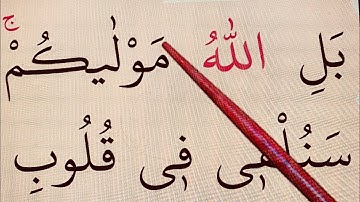 بَلِ اللهُ مَوْلٰىكُمْ ۚ
سَنُلْقِى فِى قُلُوبِ